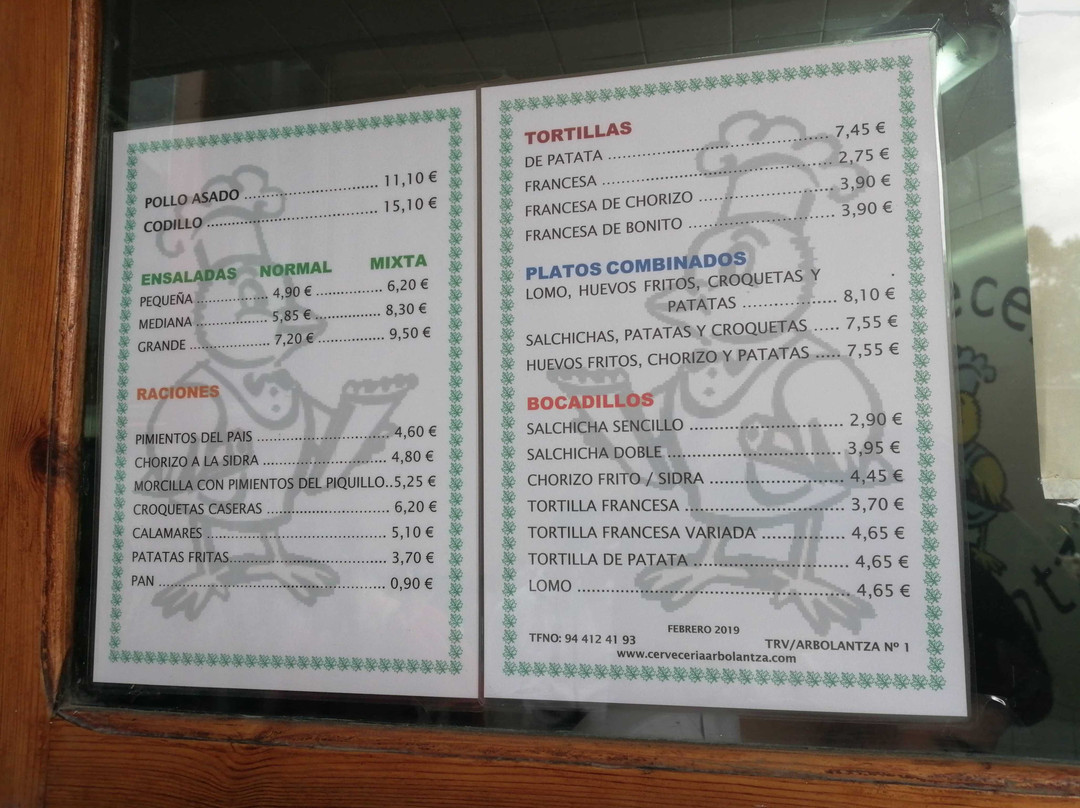 POLLO ASADO ........ 11,10 €
CODILLO ........ 15,10 €
ENSALADAS NORMAL MIXTA
PEQUEÑA ........ 4,90 € ........ 6,20 €
MEDIANA ........ 5,85 € ........ 8,30 €
GRANDE ........ 7,20 € ........ 9,50 €
RACIONES
PIMIENTOS DEL PAIS ........ 4,60 €
CHORIZO A LA SIDRA ........ 4,80 €
MORCILLA CON PIMIENTOS DEL PIQUILLO..5,25 €
CROQUETAS CASERAS ........ 6,20 €
CALAMARES ........ 5,10 €
PATATAS FRITAS ........ 3,70 €
PAN ........ 0,90 €
TORTILLAS
DE PATATA ........ 7,45 €
FRANCESA ........ 2,75 €
FRANCESA DE CHORIZO ........ 3,90 €
FRANCESA DE BONITO ........ 3,90 €
PLATOS COMBINADOS
LOMO, HUEVOS FRITOS, CROQUETAS Y
PATATAS ........ 8,10 €
SALCHICHAS, PATATAS Y CROQUETAS ..... 7,55 €
HUEVOS FRITOS, CHORIZO Y PATATAS ..... 7,55 €
BOCADILLOS
SALCHICHA SENCILLO ........ 2,90 €
SALCHICHA DOBLE ........ 3,95 €
CHORIZO FRITO / SIDRA ........ 4,45 €
TORTILLA FRANCESA ........ 3,70 €
TORTILLA FRANCESA VARIADA ........ 4,65 €
TORTILLA DE PATATA ........ 4,65 €
LOMO ........ 4,65 €
FEBRERO 2019
TFNO: 94 412 41 93 TRV/ARBOLANTZA Nº 1
www.cerveceriaarbolantza.com